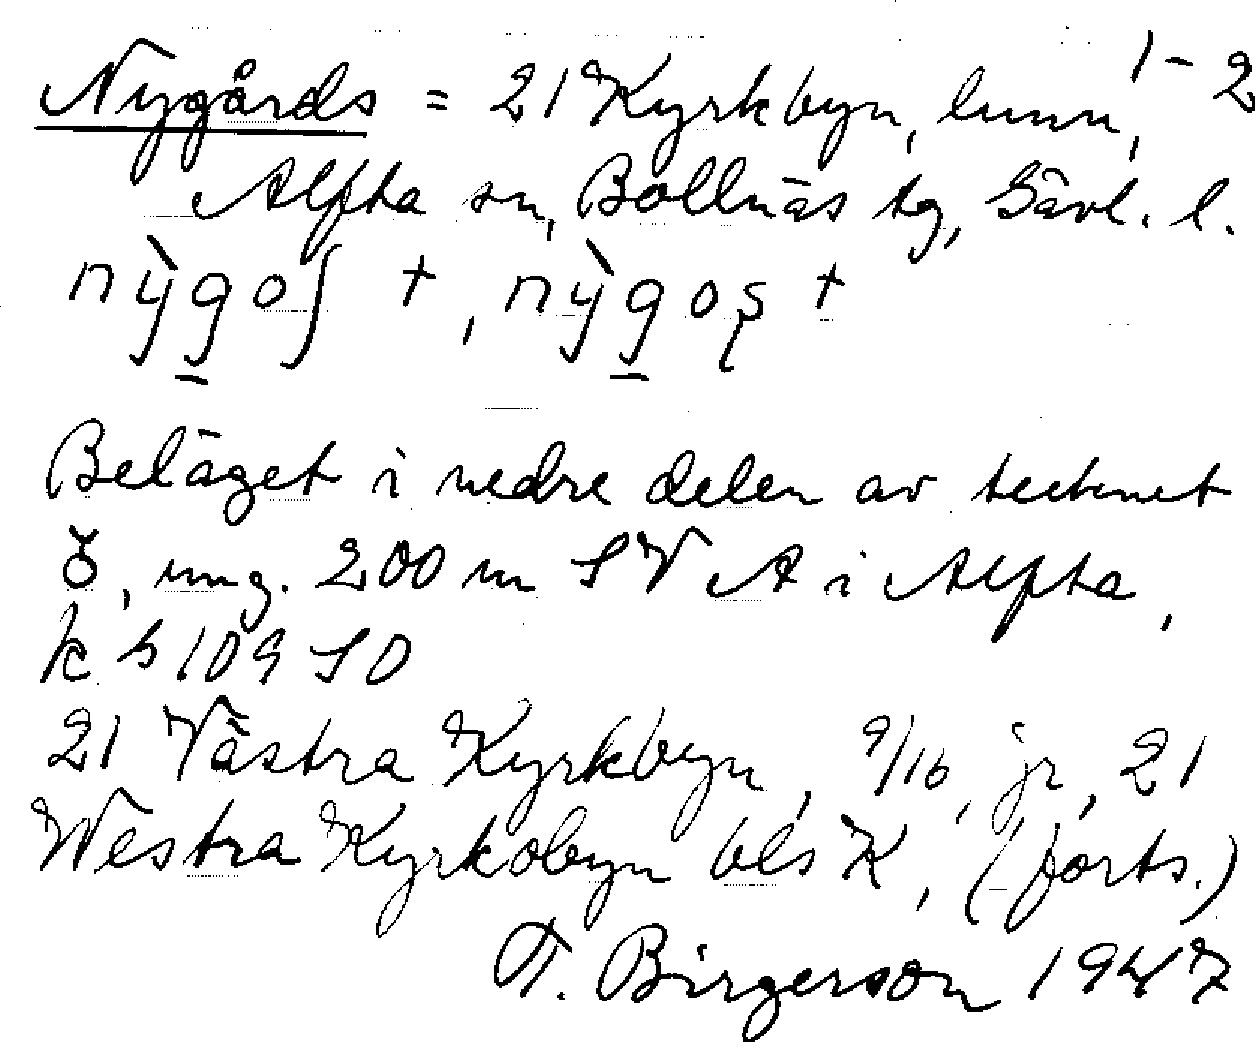 1-2
Nygårds = 21 Kyrkbyn, lunn,
Alfta sn, Bollnäs tg, Gävl. l.
nỳg̱oʃ +, nỳg̱oş +
Beläget i nedre delen av tecknet
ŏ, ung. 200 m SV A i Alfta,
kb 109 SO
21 Västra Kyrkbyn, 9/16, jr, 21
Westra Kyrkobyn bls K, (forts.)
T. Birgerson 1947